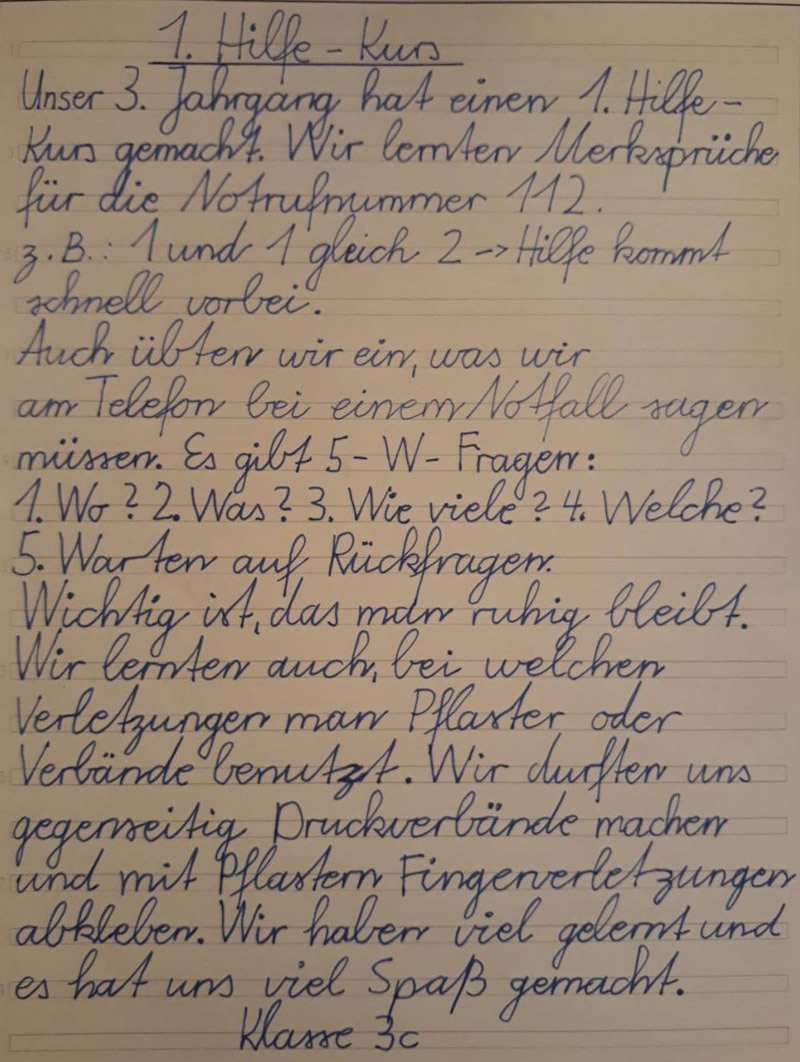 1. Hilfe-Kurs
Unser 3. Jahrgang hat einen 1. Hilfe-
Kurs gemacht. Wir lernten Merksprüche
für die Notrufnummer 112.
z.B.: 1 und 1 gleich 2 -> Hilfe kommt
schnell vorbei.
Auch übten wir ein, was wir
am Telefon bei einem Notfall sagen
müssen. Es gibt 5-W-Fragen:
1. Wo? 2. Was? 3. Wie viele? 4. Welche?
5. Warten auf Rückfragen.
Wichtig ist, das man ruhig bleibt.
Wir lernten auch, bei welchen
Verletzungen man Pflaster oder
Verbände benutzt. Wir durften uns
gegenseitig Druckverbände machen
und mit Pflastern Fingerverletzungen
abkleben. Wir haben viel gelernt und
es hat uns viel Spaß gemacht.
Klasse 3c